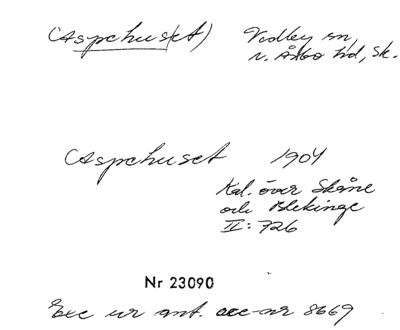 (Aspehuset) Vedby sn,
N. Åsbo hd, Sk.
Aspehuset 1904
Kal. över Skåne
och Blekinge
II: 726
Nr 23090
Exc ur ant. acc-nr 8669